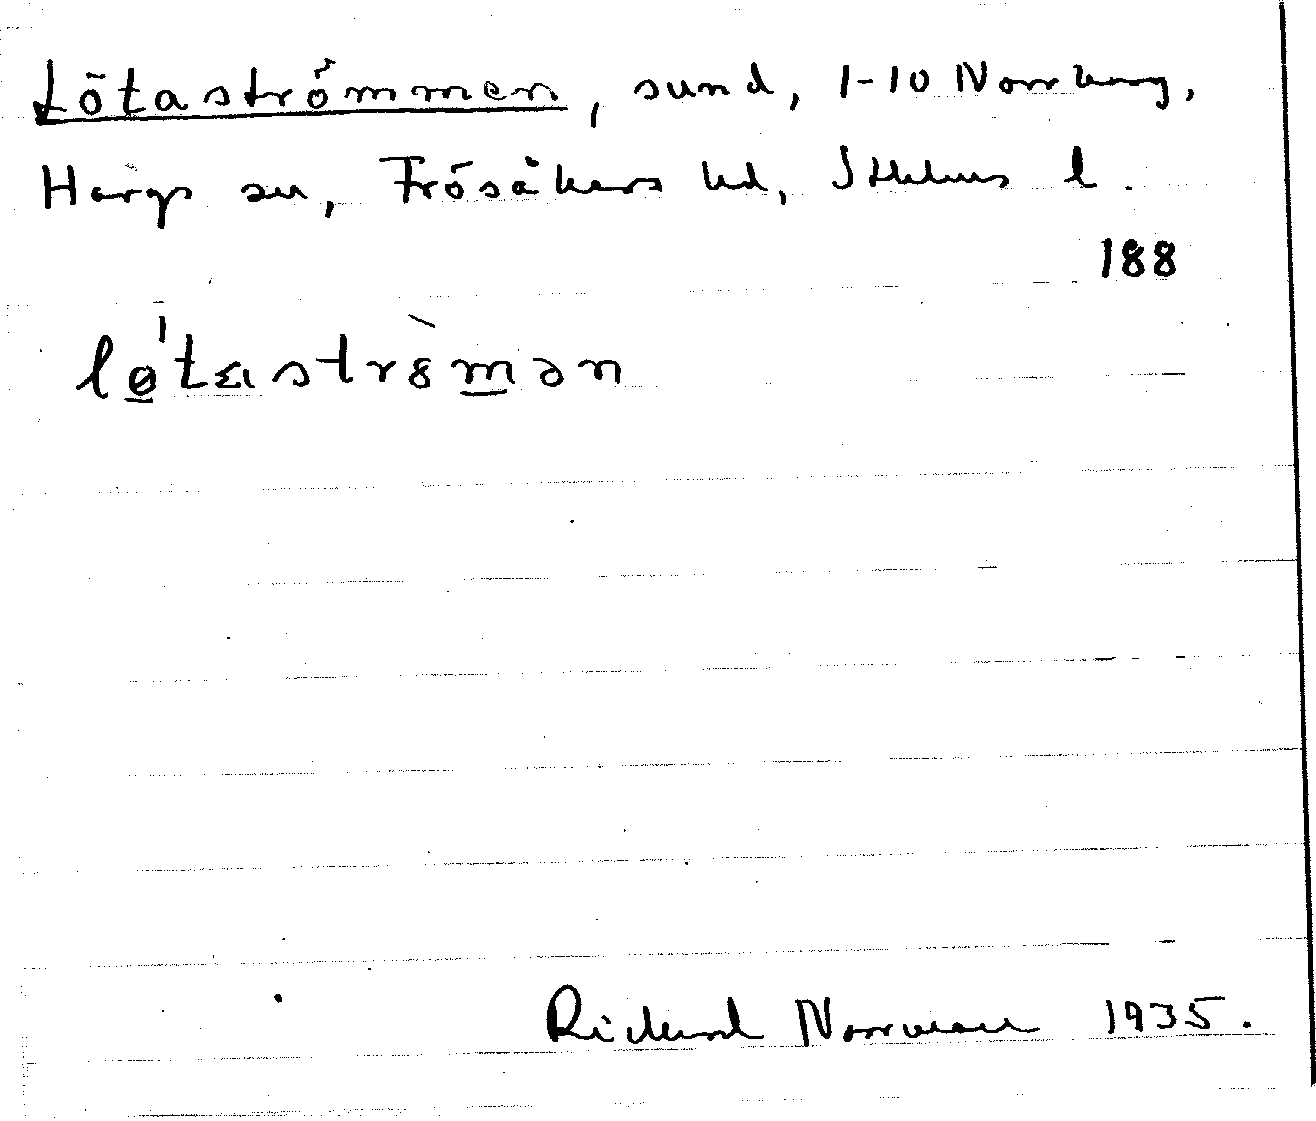 Lötaströmmen, sund, 1-10 Norrskog,
Hargs sn, Frösåkers hd, Sthlms l.
188
lø̱'tastrꞷ̀m̱ən
Rickard Norrman 1935.